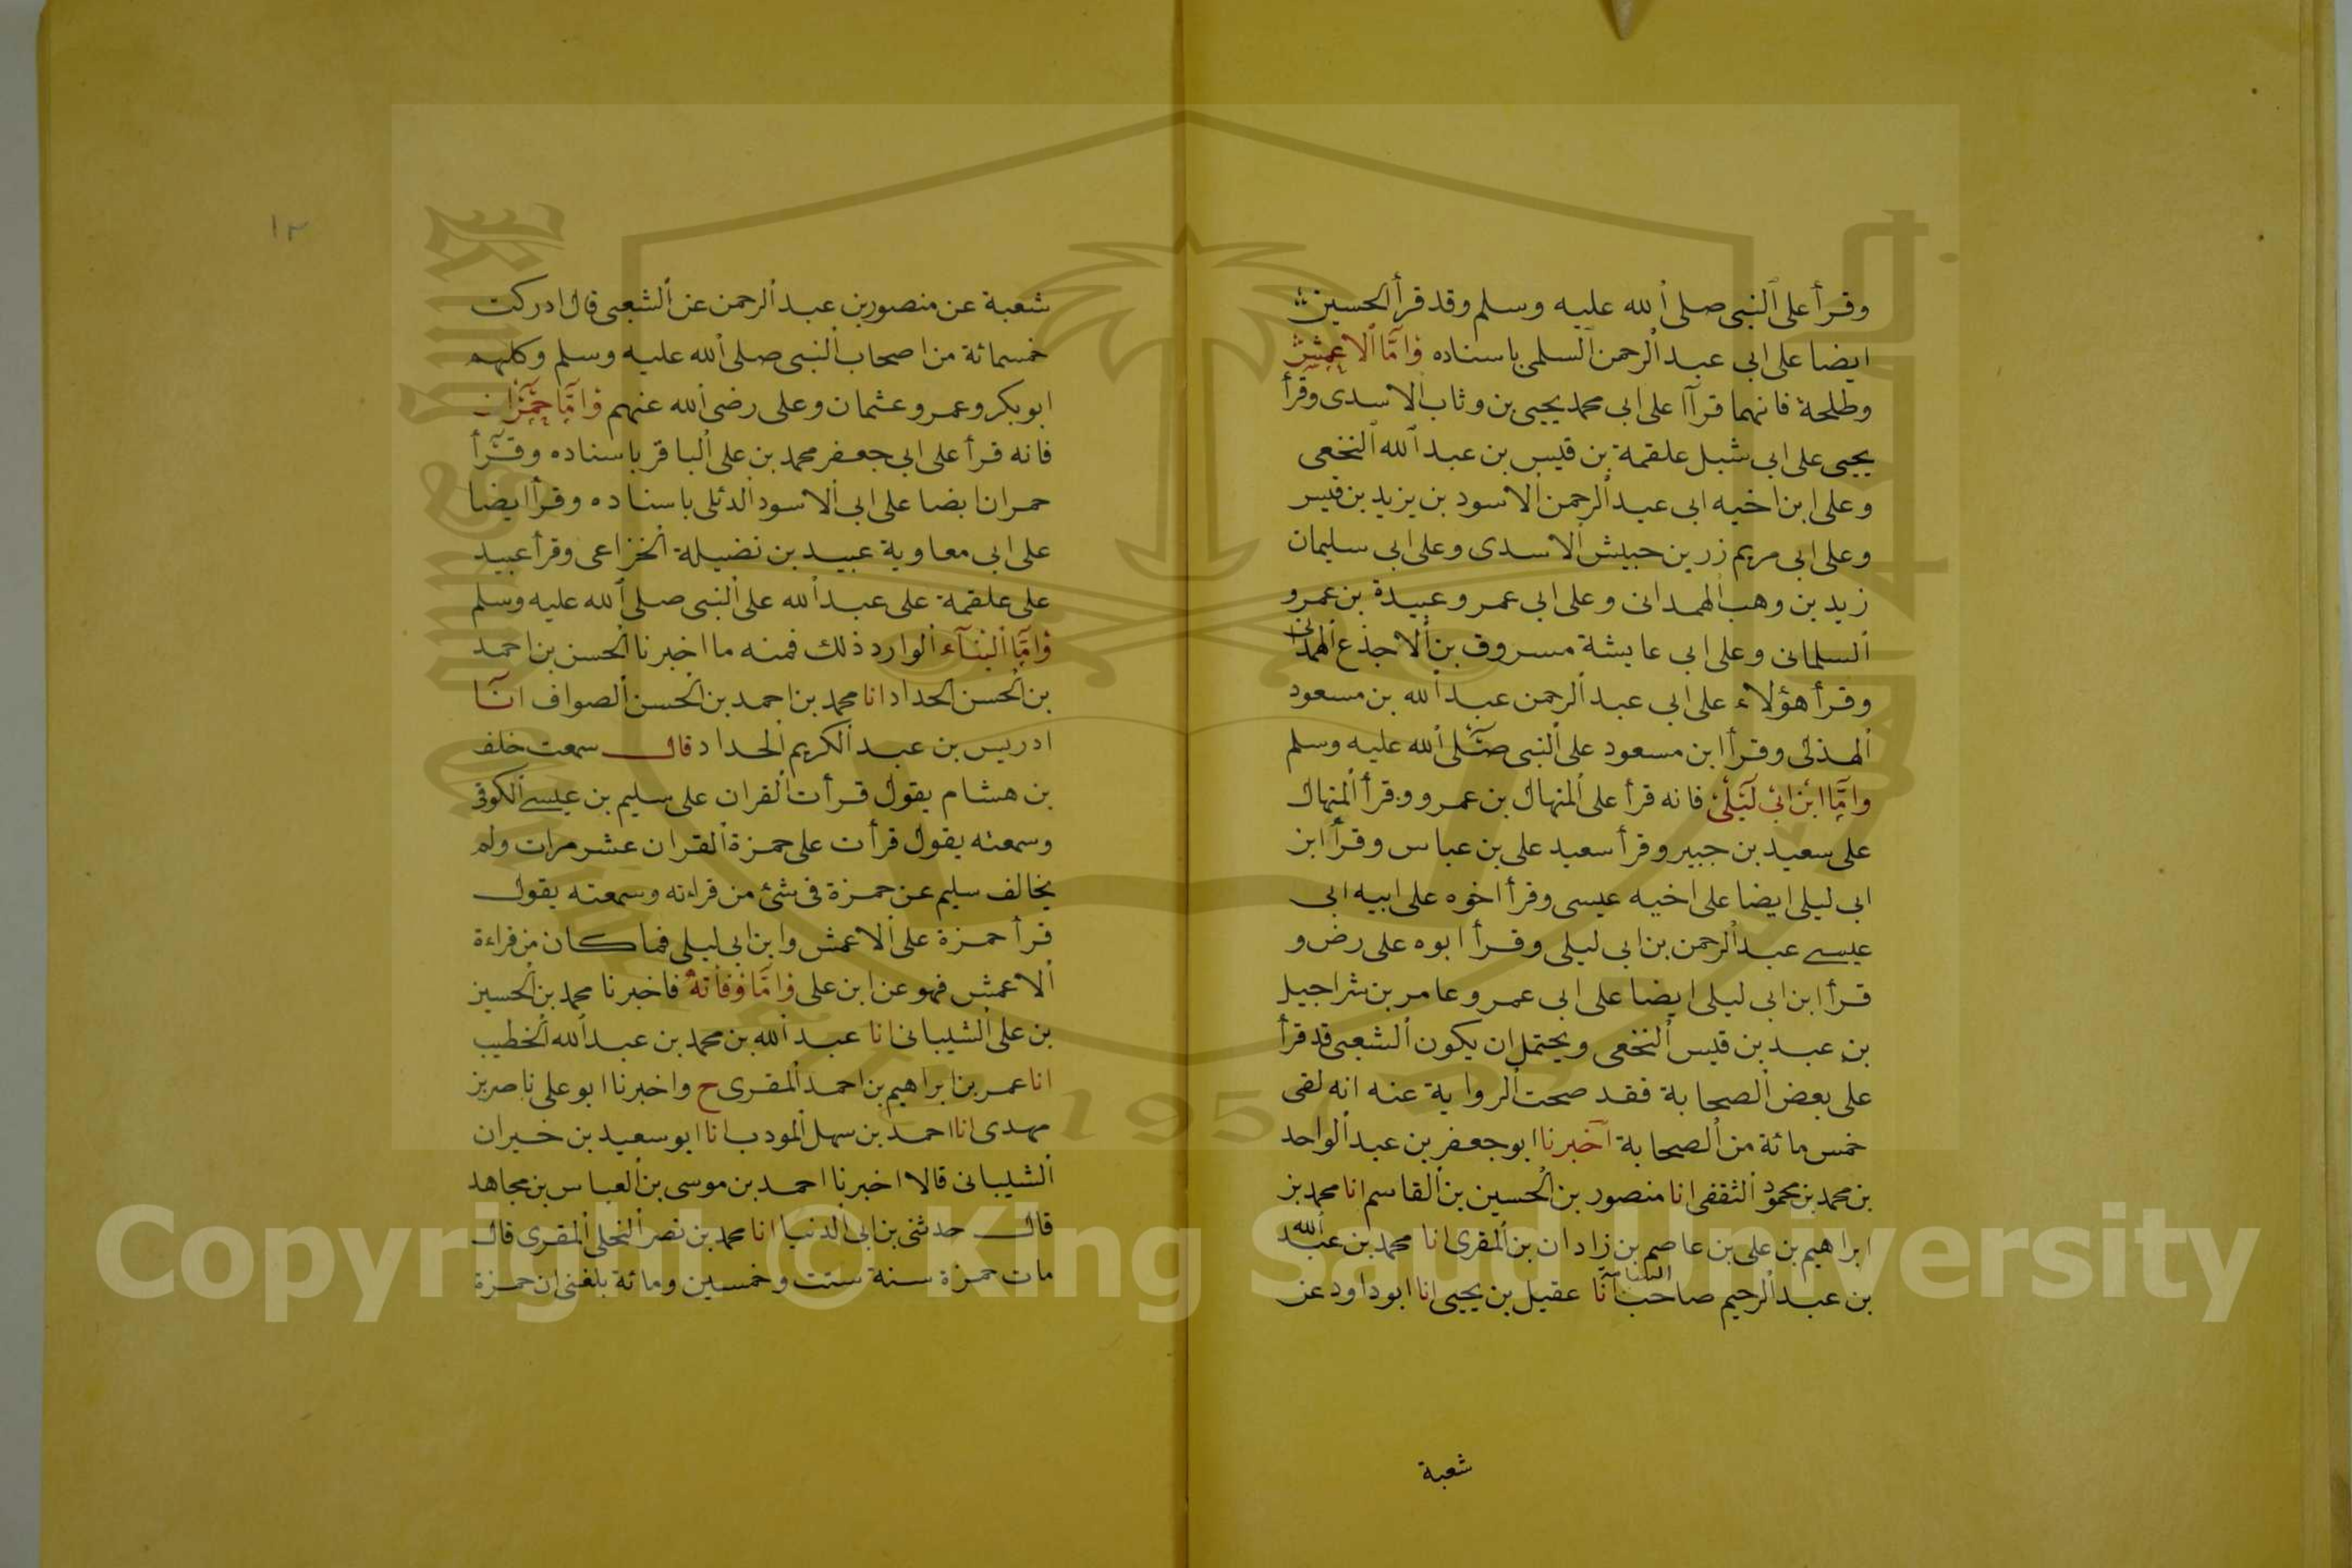 وقرأ على ٱلنبى صلى ٱلله عليه وسلم وقد قرأ ٱلحسين
ايضا على ابى عبد ٱلرحمن ٱلسلمى باسناده وَامَّا ٱلاَعْمَشُ
وطلحة فانهما قرآا على ابى محمد يحيى بن وثاب ٱلاسدى وقرأ
يحيى على ابى شبل علقمة بن قيس بن عبد ٱلله ٱلنخعى
وعلى ابن اخيه ابى عبد ٱلرحمن ٱلاسود بن يزيد بن قيس
وعلى ابى مريم زر بن حبيش ٱلاسدى وعلى ابى سليمان
زيد بن وهب ٱلهمدانى وعلى ابى عمرو عبيدة بن عمرو
ٱلسلمانى وعلى ابى عايشة مسروق بن ٱلاجذع ٱلهمدانى
وقرأ هؤلاء على ابى عبد ٱلرحمن عبد ٱلله بن مسعود
ٱلهذلى وقرأ ابن مسعود على ٱلنبى صلى ٱلله عليه وسلم
وامَّا ابْن ابىْ لَيْلىْ فانه قرأ على ٱلمنهال بن عمرو وقرأ ٱلمنهال
على سعيد بن جبير وقرأ سعيد على بن عباس وقرأ ابن
ابى ليلى ايضا على اخيه عيسى وقرأ اخوه على ابيه ابى
عيسى عبد ٱلرحمن بن ابى ليلى وقرأ ابوه على رض و
قرأ ابن ابى ليلى ايضا على ابى عمرو عامر بن شراجيل
بن عبد بن قيس ٱلنخعى ويحتمل ان يكون ٱلشعبى قد قرأ
على بعض ٱلصحابة فقد صحت ٱلرواية عنه انه لقى
خمس مائة من ٱلصحابة اخبرنا ابو جعفر بن عبد ٱلواحد
بن محمد بن محمود ٱلثقفى انا منصور بن ٱلحسين بن ٱلقاسم انا محمد بن
ابراهيم بن على بن عاصم بن زادان بن ٱلمقرى انا محمد بن عبد ٱلله
بن عبد ٱلرحيم صاحب انا عقيل بن يحيى انا ابو داود عن
شعبة
١٢
شعبة عن منصور بن عبد ٱلرحمن عن ٱلشعبى قال ادركت
خمسمائة من اصحاب ٱلنبى صلى ٱلله عليه وسلم وكلهم
ابو بكر وعمر وعثمان وعلى رضى ٱلله عنهم وَامَّا حُمْرَان
فانه قرأ على ابى جعفر محمد بن على ٱلباقر باسناده وقرأ
حمران ايضا على ابى ٱلاسود ٱلدئلى باسناده وقرأ ايضا
على ابى معاوية عبيد بن نضيلة ٱلخزاعى وقرأ عبيد
على علقمة على عبد ٱلله على ٱلنبى صلى ٱلله عليه وسلم
وَامَّا ٱلبنآء ٱلوارد ذلك فمنه ما اخبرنا ٱلحسن بن احمد
بن ٱلحسن ٱلحداد انا محمد بن احمد بن ٱلحسن ٱلصواف انا
ادريس بن عبد ٱلكريم ٱلحداد قال سمعت خلف
بن هشام يقول قرأت ٱلقران على سليم بن عيسى ٱلكوفى
وسمعته يقول قرأت على حمزة ٱلقران عشر مرات ولم
يخالف سليم عن حمزة فى شئ من قراءته وسمعته يقول
قرأ حمزة على ٱلاعمش وابن ابى ليلى فما كان من قراءة
ٱلاعمش فهو عن ابن على وَامَّا وَفَاتهُ فاخبرنا محمد بن ٱلحسين
بن على ٱلشيبانى انا عبد ٱلله بن محمد بن عبد ٱلله ٱلخطيب
انا عمر بن ابراهيم بن احمد ٱلمقرى ح واخبرنا ابو على ناصر بن
مهدى انا احمد بن سهل ٱلمودب انا ابو سعيد بن خيران
ٱلشيبانى قالا اخبرنا احمد بن موسى بن ٱلعباس بن مجاهد
قال حدثنى بن ابى ٱلدنيا انا محمد بن نصر ٱلنحلى ٱلمقرى قال
مات حمزة سنة ست وخمسين ومائة بلغنى ان حمزة
Copyright © King Saud University
1957